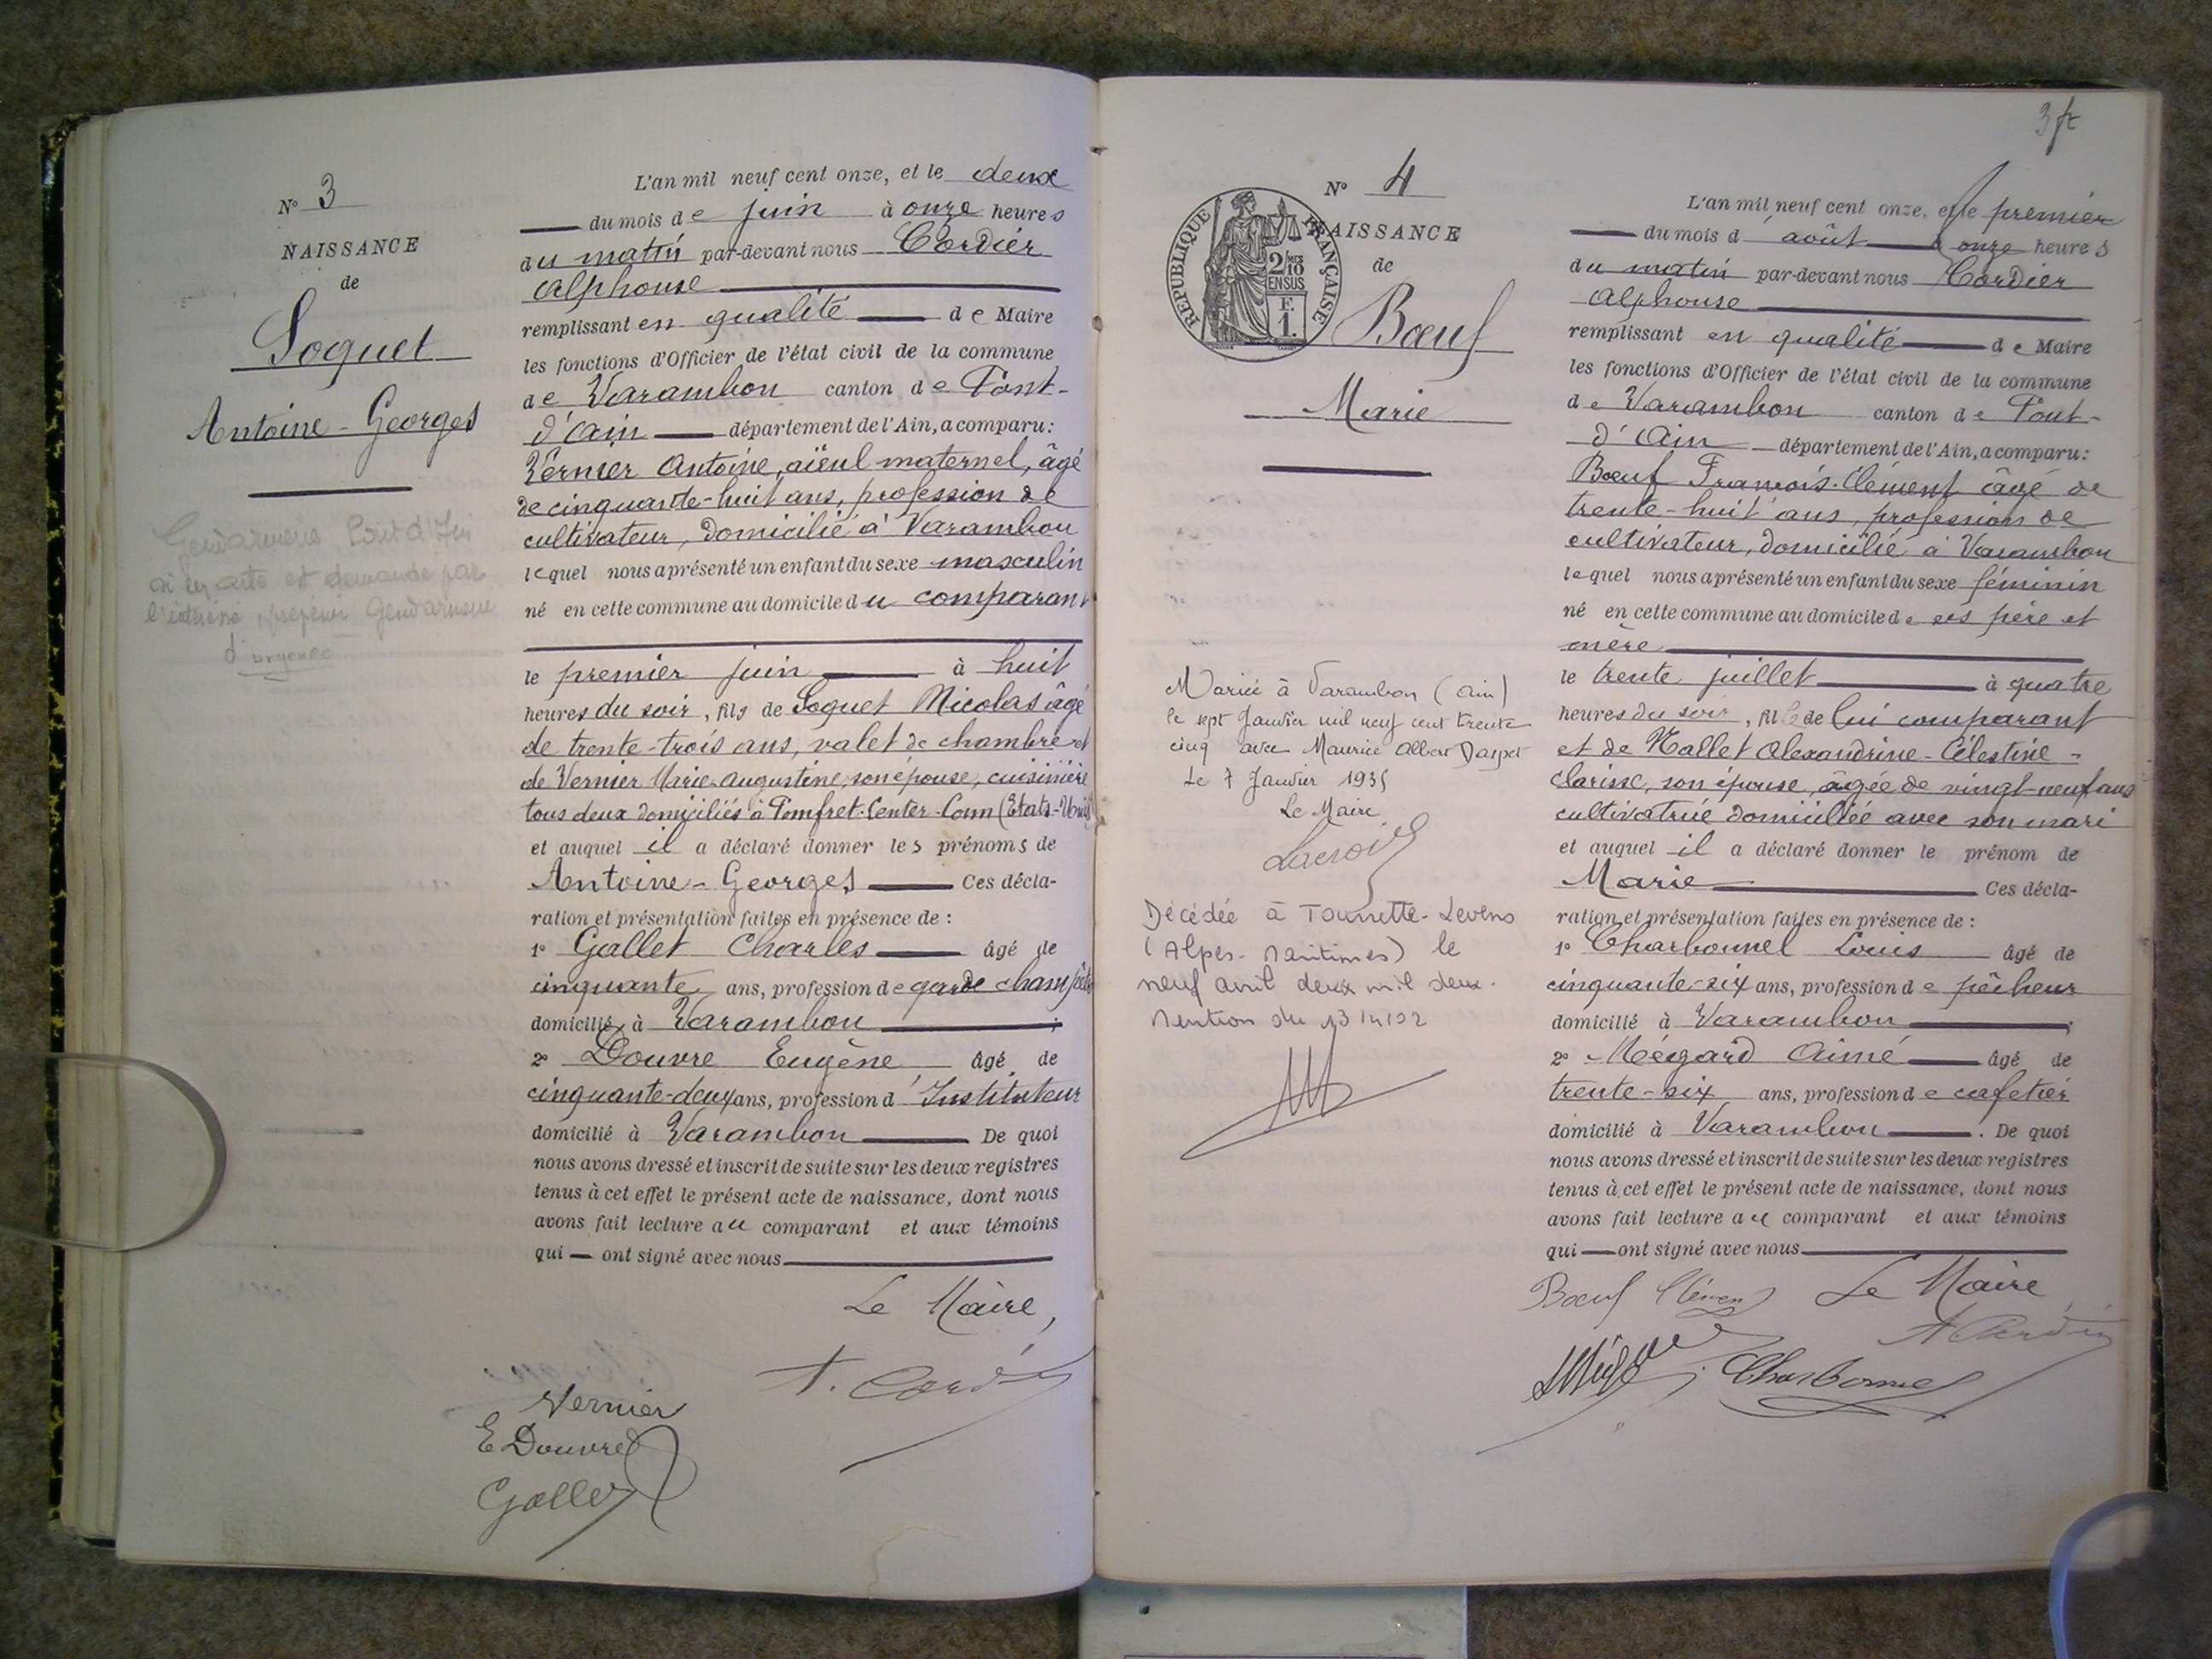 N° 3
NAISSANCE
de
Soquet
Antoine-Georges
Gendarmerie Pont d'Ain
si un acte est demandé par
l'intéressé, prévenir Gendarmerie
d'urgence
L'an mil neuf cent onze, et le deux
du mois de juin à onze heures
du matin par-devant nous Cordier
Alphonse
remplissant en qualité de Maire
les fonctions d'Officier de l'état civil de la commune
de Varambon canton de Pont-
d'Ain département de l'Ain, a comparu:
Vernier Antoine, aïeul maternel, âgé
de cinquante-huit ans, profession de
cultivateur, domicilié à Varambon
lequel nous a présenté un enfant du sexe masculin
né en cette commune au domicile du comparant
le premier juin à huit
heures du soir, fils de Soquet Nicolas âgé
de trente-trois ans, valet de chambre et
de Vernier Marie-Augustine, son épouse, cuisinière
tous deux domiciliés à Pomfret-Center-Conn (Etats-Unis)
et auquel il a déclaré donner les prénoms de
Antoine-Georges Ces décla-
ration et présentation faites en présence de :
1° Gallet Charles âgé de
cinquante ans, profession de garde champêtre
domicilié à Varambon ;
2° Douvre Eugène âgé de
cinquante-deux ans, profession d'Instituteur
domicilié à Varambon De quoi
nous avons dressé et inscrit de suite sur les deux registres
tenus à cet effet le présent acte de naissance, dont nous
avons fait lecture au comparant et aux témoins
qui ont signé avec nous
Le Maire,
A. Cordier
Vernier
E Douvre
Gallet
3 ft
N° 4
NAISSANCE
de
REPUBLIQUE FRANÇAISE
2/10 EN SUS
F.
1.
Bœuf
Marie
Mariée à Varambon (Ain)
le sept Janvier mil neuf cent trente
cinq avec Maurice Albert Daspet
Le 7 Janvier 1935
Le Maire
Lacroix
Décédée à Tourrette-Levens
(Alpes-Maritimes) le
neuf avril deux mil deux.
Mention du
L'an mil neuf cent onze, et le premier
du mois d août à onze heures
du matin par-devant nous Cordier
Alphonse
remplissant en qualité de Maire
les fonctions d'Officier de l'état civil de la commune
de Varambon canton de Pont-
d'Ain département de l'Ain, a comparu:
Bœuf François-Clément âgé de
trente-huit ans, profession de
cultivateur, domicilié à Varambon
lequel nous a présenté un enfant du sexe féminin
né en cette commune au domicile de ses père et
mère
le trente juillet à quatre
heures du soir, fille de lui comparant
et de Mallet Alexandrine-Célestine-
Clarisse, son épouse, âgée de vingt-neuf ans
cultivatrice domiciliée avec son mari
et auquel il a déclaré donner le prénom de
Marie Ces décla-
ration et présentation faites en présence de :
1° Charbonnel Louis âgé de
cinquante-six ans, profession de pêcheur
domicilié à Varambon ;
2° Mégard Aimé âgé de
trente-six ans, profession de cafetier
domicilié à Varambon . De quoi
nous avons dressé et inscrit de suite sur les deux registres
tenus à cet effet le présent acte de naissance, dont nous
avons fait lecture au comparant et aux témoins
qui ont signé avec nous
Bœuf Clément Le Maire
A Cordier
Mégard Charbonnel